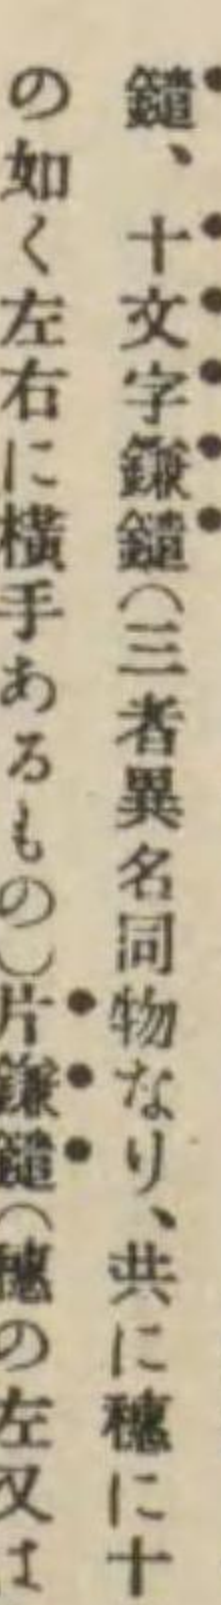 鑓、十文字鎌鑓(三者異名同物なり、共に穗に十
の如く左右に橫手あるもの)片鎌鑓(穗の左又は